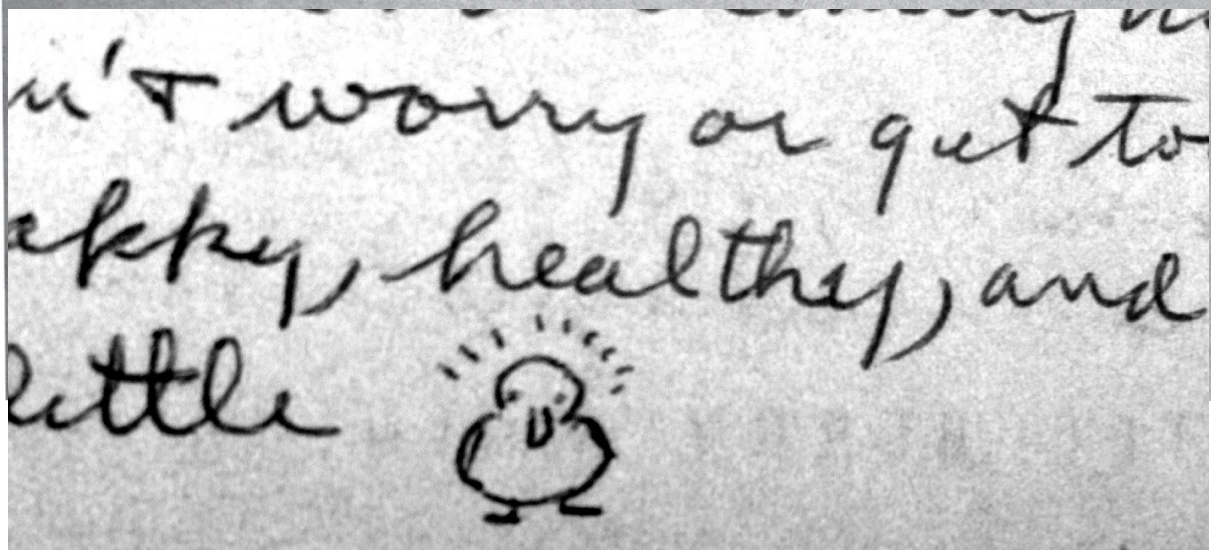 n't worry or get to
appy, healthy, and
little